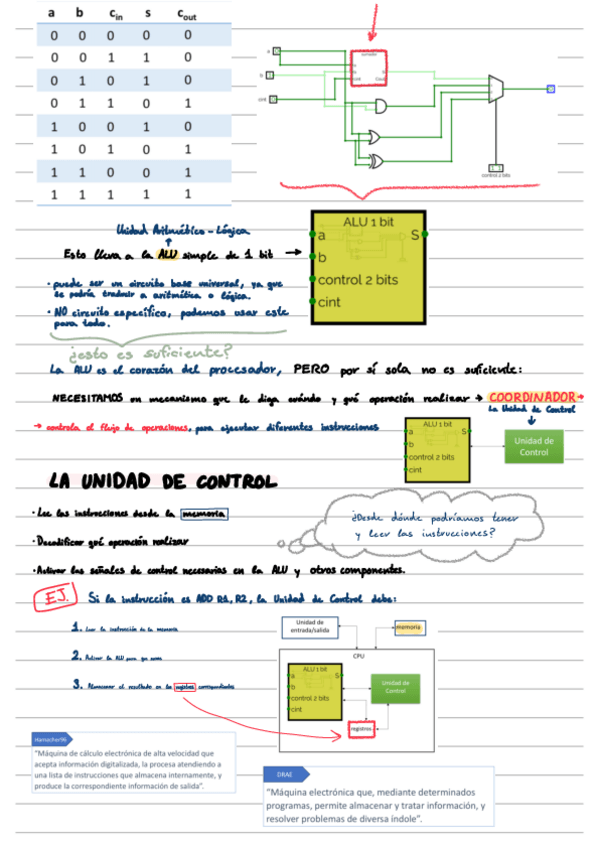 a b cin s cout
0 0 0 0 0
0 0 1 1 0
0 1 0 1 0
0 1 1 0 1
1 0 0 1 0
1 0 1 0 1
1 1 0 0 1
1 1 1 1 1
a
b
cint
sumador
S
Cout
control 2 bits
Unidad Aritmético-Lógica
Esto lleva a la ALU simple de 1 bit →
ALU 1 bit
a S
b
control 2 bits
cint
· puede ser un circuito base universal, ya que
se podría traducir a aritmética o lógica.
· NO circuito específico, podemos usar este
para todo.
¿esto es suficiente?
La ALU es el corazón del procesador, PERO por sí sola no es suficiente:
NECESITAMOS un mecanismo que le diga cuándo y qué operación realizar → COORDINADOR →
La Unidad de Control
→ controla el flujo de operaciones, para ejecutar diferentes instrucciones
ALU 1 bit
a S
b
control 2 bits
cint
Unidad de
Control
LA UNIDAD DE CONTROL
· Lee las instrucciones desde la memoria
· Decodificar qué operación realizar
· Activar las señales de control necesarias en la ALU y otros componentes.
¿Desde dónde podríamos tener
y leer las instrucciones?
EJ. Si la instrucción es ADD R1, R2, la Unidad de Control debe:
1. Leer la instrucción de la memoria
2. Activar la ALU para que sume
3. Almacenar el resultado en los registros correspondientes
Unidad de
entrada/salida
memoria
CPU
ALU 1 bit
a S
b
control 2 bits
cint
Unidad de
Control
registros
Hamacher96
"Máquina de cálculo electrónica de alta velocidad que
acepta información digitalizada, la procesa atendiendo a
una lista de instrucciones que almacena internamente, y
produce la correspondiente información de salida".
DRAE
"Máquina electrónica que, mediante determinados
programas, permite almacenar y tratar información, y
resolver problemas de diversa índole".